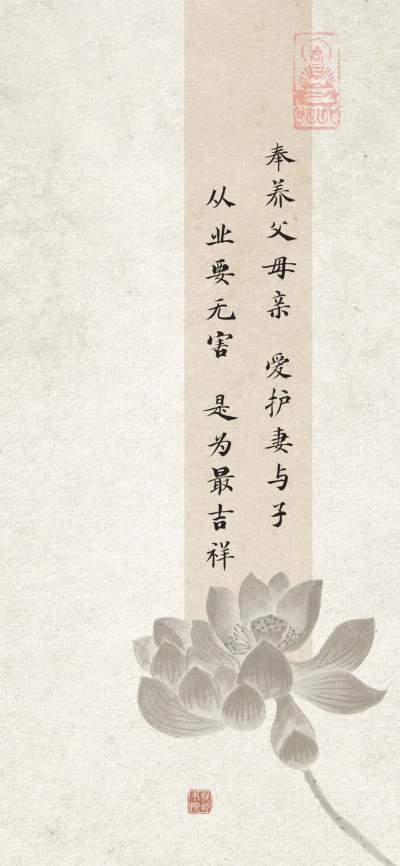 奉养父母亲 爱护妻与子
从业要无害 是为最吉祥